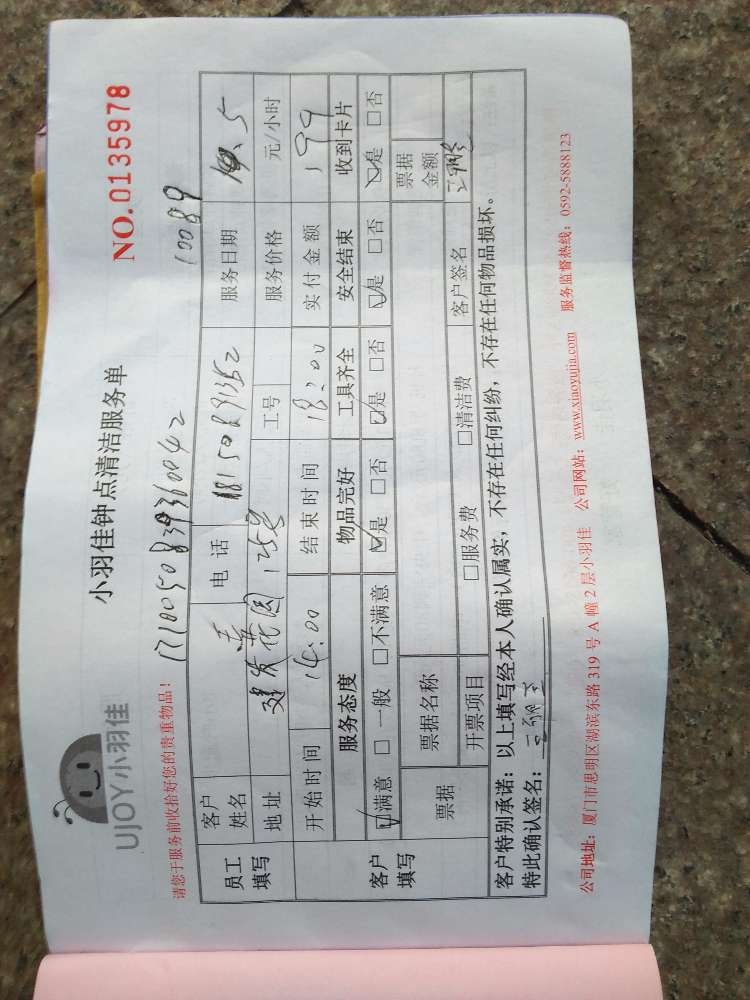 UJOY小羽佳
小羽佳钟点清洁服务单
NO.0135978
请您于服务前收拾好您的贵重物品！
10089
员工填写
客户姓名
电话
服务日期 10.5
地址 建发花园
工号
服务价格 元/小时
客户填写
开始时间 14:00 结束时间 18:00 实付金额 199
服务态度 物品完好 工具齐全 安全结束 收到卡片
☑满意 □一般 □不满意 ☑是 □否 ☑是 □否 ☑是 □否 ☑是 □否
票据
票据名称
票据金额
开票项目 □服务费 □清洁费 客户签名
客户特别承诺：以上填写经本人确认属实，不存在任何纠纷，不存在任何物品损坏。
特此确认签名：
公司地址：厦门市思明区湖滨东路 319 号 A 幢 2 层小羽佳 公司网站：www.xiaoyujia.com 服务监督热线：0592-5888123